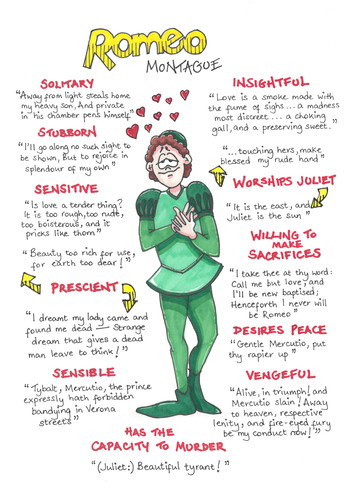 Romeo
MONTAGUE
SOLITARY
"Away from light steals home
my heavy son, And private
in his chamber pens himself"
STUBBORN
"I'll go along no such sight to
be shown, But to rejoice in
splendour of my own"
SENSITIVE
"Is love a tender thing?
It is too rough, too rude,
too boisterous, and it
pricks like thorn"
"Beauty too rich for use,
for earth too dear!"
PRESCIENT
"I dreamt my lady came and
found me dead — Strange
dream that gives a dead
man leave to think!"
SENSIBLE
"Tybalt, Mercutio, the prince
expressly hath forbidden
bandying in Verona
streets"
INSIGHTFUL
"Love is a smoke made with
the fume of sighs... a madness
most discreet... a choking
gall, and a preserving sweet."
"...touching hers, make
blessed my rude hand"
WORSHIPS JULIET
"It is the east, and
Juliet is the sun"
WILLING TO
MAKE
SACRIFICES
"I take thee at thy word:
Call me but love, and
I'll be new baptised;
Henceforth I never will
be Romeo"
DESIRES PEACE
"Gentle Mercutio, put
thy rapier up"
VENGEFUL
"Alive, in triumph! and
Mercutio slain! Away
to heaven, respective
lenity, and fire-eyed fury
be my conduct now!"
HAS THE
CAPACITY TO MURDER
"(Juliet:) Beautiful tyrant!"